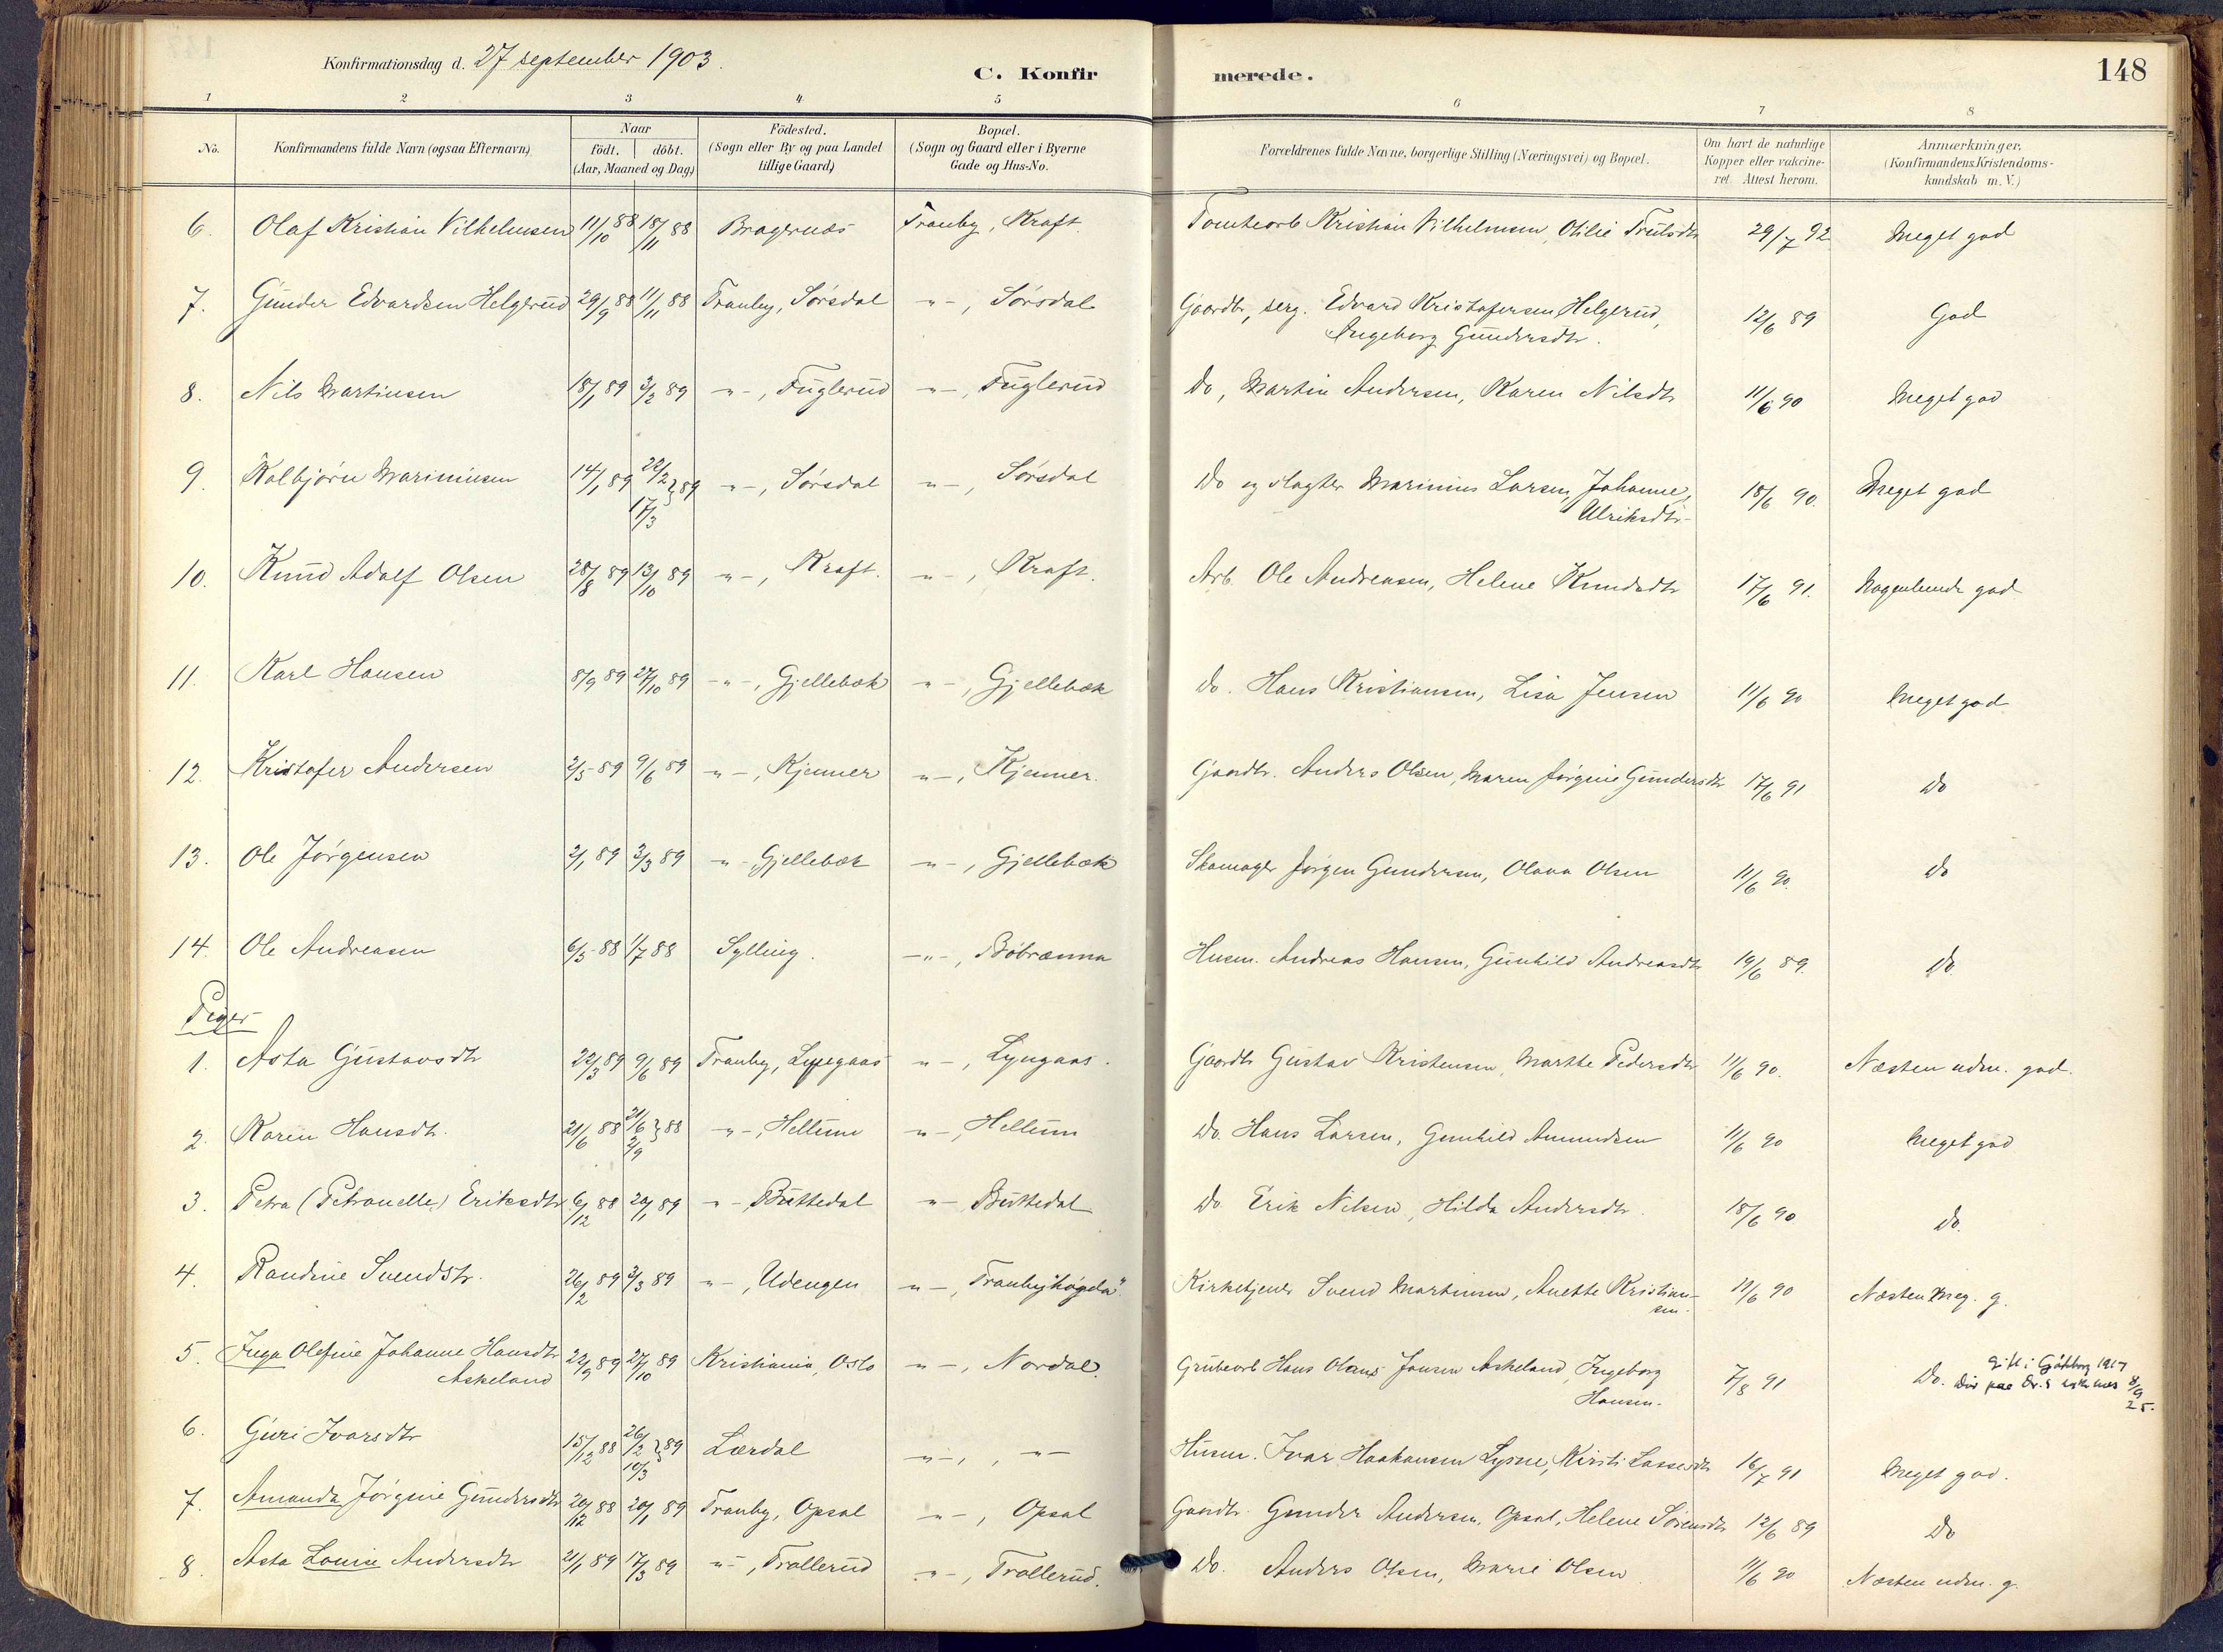 Konfirmationsdag d. 27 september 1903.
C. Konfirmerede.
148
1 2 3 4 5 6 7 8
No.
Konfirmandens fulde Navn (ogsaa Efternavn)
Naar
födt. döbt.
(Aar, Maaned og Dag)
Födested.
(Sogn eller By og paa Landet
tillige Gaard)
Bopæl.
(Sogn og Gaard eller i Byerne
Gade og Hus-No.
Forældrenes fulde Navne, borgerlige Stilling (Næringsvei) og Bopæl.
Om havt de naturlige
Kopper eller vakcine-
ret. Attest herom.
Anmærkninger.
(Konfirmandens Kristendoms-
kundskab m. V.)
6. Olaf Kristian Vilhelmsen 11/10 88 18/11 88 Bragernæs Tranby, Kraft. Tomtearb Kristian Vilhelmsen, Otilie Trulsdtr 29/7 92 Meget god
7. Gunder Edvardsen Helgerud 29/9 88 11/11 88 Tranby, Sørsdal -"-, Sørsdal Gaardbr, serg. Edvard Kristofersen Helgerud, 12/6 89 God
Ingeborg Gundersdtr.
8. Nils Martinsen 18/1 89 3/2 89 -"-, Fuglerud -"-, Fuglerud Do, Martin Andersen, Karen Nilsdtr 11/6 90 Meget god
9. Kolbjørn Mariniusen 14/1 89 22/2 17/3 } 89 -"-, Sørsdal -"-, Sørsdal Do og slagter Marinius Larsen, Johanne 18/6 90. Meget god
Ulriksdtr-
10. Knud Adolf Olsen 28/8 89 13/10 89 -"-, Kraft. -"-, Kraft. Arb. Ole Andreasen, Helene Knudsdtr 17/6 91. Nogenlunde god
11. Karl Hansen 8/9 89 27/10 89 -"-, Gjellebæk -"-, Gjellebæk Do. Hans Kristiansen, Lisa Jensen 11/6 90 Meget god
12. Kristofer Andersen 2/5 89 9/6 89 -"-, Kjenner -"-, Kjenner. Gaardbr. Anders Olsen, Maren Jørgine Gundersdtr 17/6 91 Do
13. Ole Jørgensen 2/1 89 3/3 89 -"- Gjellebæk -"-, Gjellebæk Skomager Jørgen Gundersen, Olava Olsen 11/6 90. Do
14. Ole Andreasen 6/5 88 1/7 88 Sylling. -"-, Bøbrænna Husm. Andreas Hansen, Gunhild Andreasdtr 19/6 89. Do.
Piger
1. Asta Gustavsdtr 22/3 89 9/6 89 Tranby, Lyngaas -"-, Lyngaas. Gaardbr Gustav Kristensen, Marthe Pedersdtr 11/6 90. Næsten udm. god.
2. Karen Hansdtr. 21/6 88 21/6 2/9 } 88 -"-, Hellum -"-, Hellum Do. Hans Larsen, Gunhild Amundsen 11/6 90 Meget god
3. Petra (Petronelle) Eriksdtr 6/12 88 20/1 89 -"- Buttedal -"- Buttedal Do. Erik Nilsen, Hilda Andersdtr. 18/6 90 Do.
4. Randine Svendstr. 26/2 89 3/3 89 -"-, Udengen -"-, "Tranbyhøgda". Kirketjener Svend Martinsen, Anette Kristian- 11/6 90 Næsten Meg. g.
sen.
5. Inga Olefine Johanne Hansdtr 22/9 89 27/10 89 Kristiania, Oslo -"-, Nordal. Grubearb Hans Olaus Jansen Askeland, Ingeborg 7/8 91 Do. gift i Gøtborg 1917
Askeland Hansen. Død paa Dr.s sykehus 8/9
25.
6. Guri Ivarsdtr 15/12 88 26/2 10/3 } 89 Lærdal -"-, -"- Husm. Ivar Haakonsen Lysne, Kirsti Lassesdtr 16/7 91 Meget god.
7. Amanda Jørgine Gundersdtr 20/12 88 20/1 89 Tranby, Opsal -"-, Opsal Gaardbr. Gunder Andersen, Opsal, Helene Sørensdtr 12/6 89 Do
8. Asta Louise Andersdtr 21/1 89 17/3 89 -"-, Trollerud -"-, Trollerud. Do. Anders Olsen, Marie Olsen 11/6 90 Næsten udm. g.